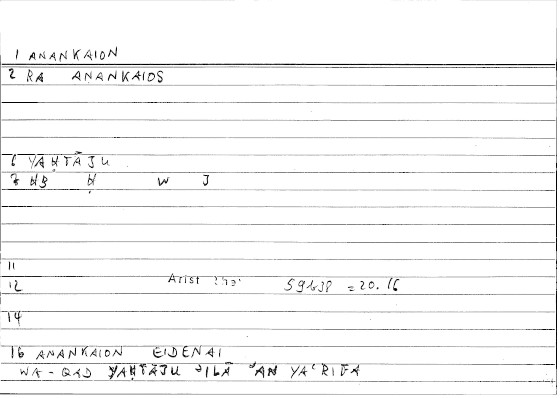 1 ANANKAION
2 RA ANANKAIOS
6 YAḤTĀJU
7 ḤB Ḥ W J
11
12 Arist 59b38 = 20.16
14
16 ANANKAION EIDENAI
WA-QAD YAḤTĀJU ʾILĀ ʾAN YAʿRIFA